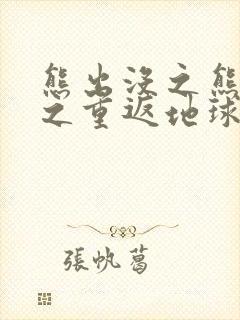 熊出没之熊
之重返地球
張帆葛